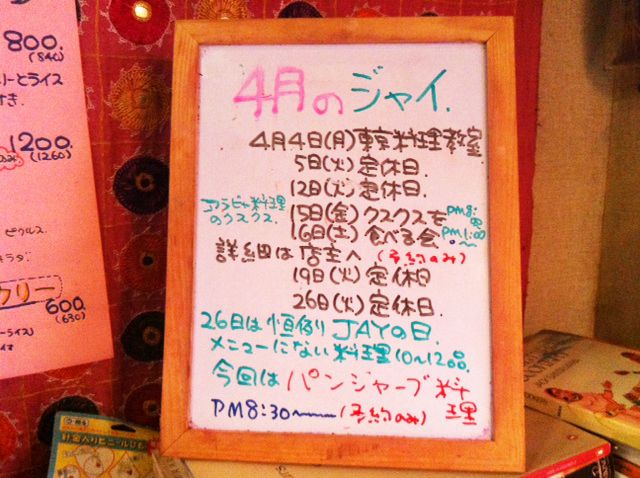 800.
(840)
リーとライス
すき.
1200.
(1260)
ピクルス
サラダ
カリー
600.
(630)
4月のジャイ.
4月4日(月)東京料理教室.
5日(火)定休日.
12日(火)定休日.
アラビヤ料理
のクスクス.
15日(金)クスクスを PM8:00
16日(土)食べる会 PM1:00〜
詳細は店主へ(予約のみ)
19日(火)定休日
26日(火)定休日.
26日は恒例JAYの日.
メニューにない料理10〜12品.
今回はパンジャーブ料理
PM8:30〜(予約のみ)